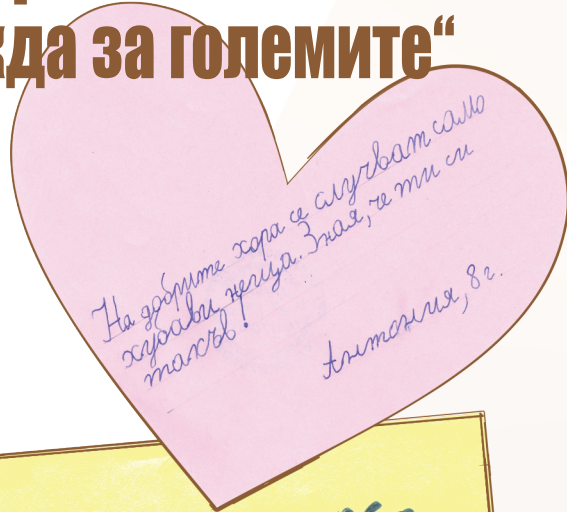 жда за големите“
На добрите хора се случват само
хубави неща. Зная, че ти си
такъв!
Антония, 8 г.